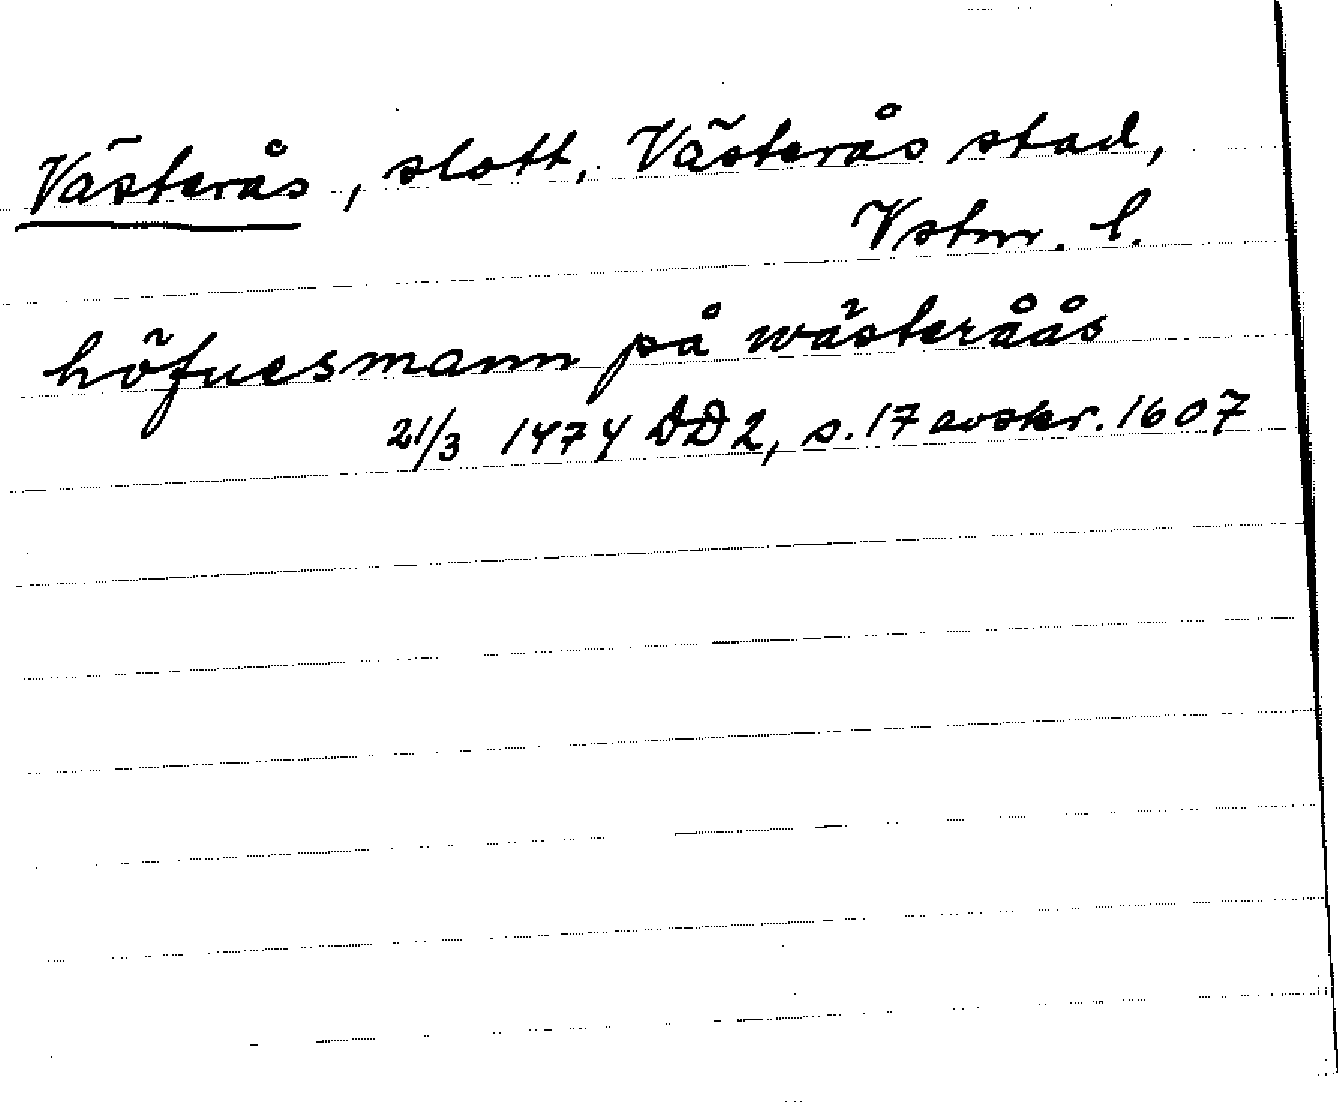 Västerås, slott, Västerås stad,
Vstm. l.
höfuesmann på wästeråås
21/3 1474 DD 2, s. 17 avskr. 1607